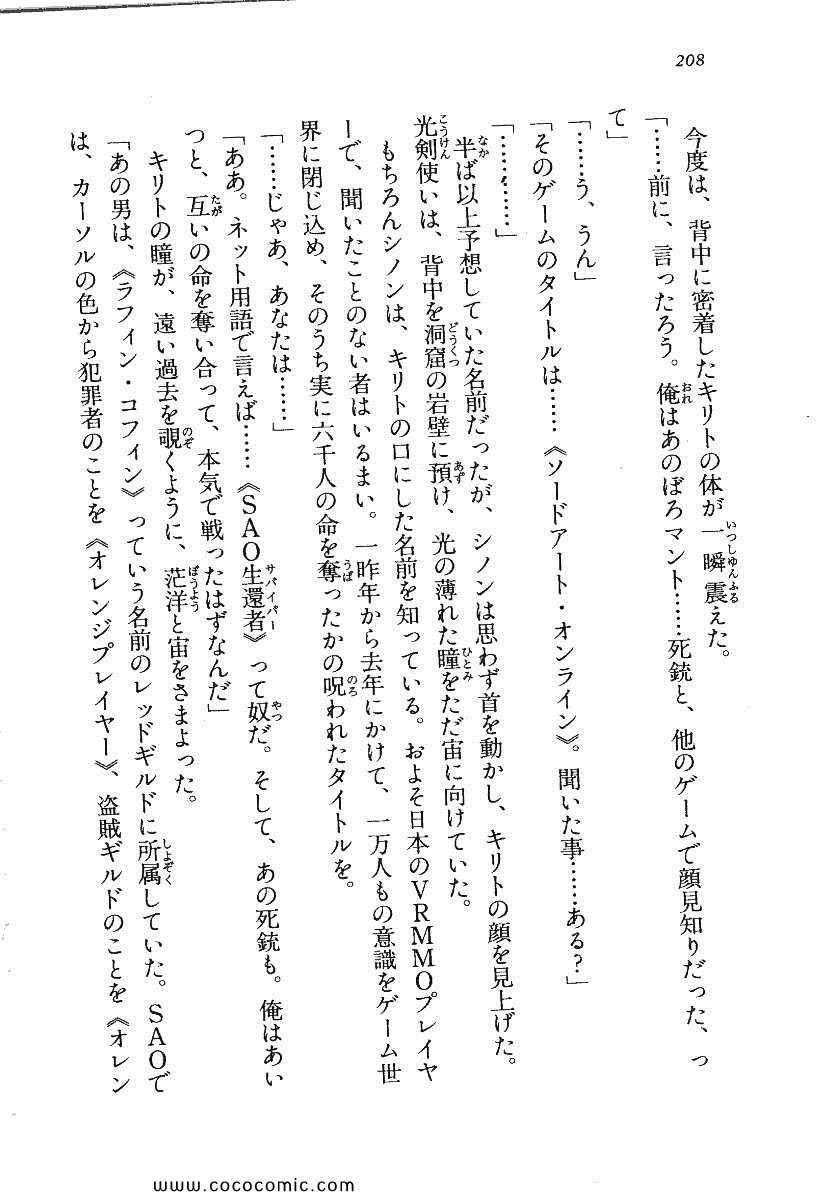 208
今度は、背中に密着したキリトの体が一瞬震えた。
「……前に、言ったろう。俺はあのぼろマント……死銃と、他のゲームで顔見知りだった、っ
て」
「……う、うん」
「そのゲームのタイトルは……《ソードアート・オンライン》。聞いた事……ある?」
「…………」
半ば以上予想していた名前だったが、シノンは思わず首を動かし、キリトの顔を見上げた。
光剣使いは、背中を洞窟の岩壁に預け、光の薄れた瞳をただ宙に向けていた。
もちろんシノンは、キリトの口にした名前を知っている。およそ日本のVRMMOプレイヤ
ーで、聞いたことのない者はいるまい。一昨年から去年にかけて、一万人もの意識をゲーム世
界に閉じ込め、そのうち実に六千人の命を奪ったかの呪われたタイトルを。
「……じゃあ、あなたは……」
「ああ。ネット用語で言えば……《SAO生還者》って奴だ。そして、あの死銃も。俺はあい
つと、互いの命を奪い合って、本気で戦ったはずなんだ」
キリトの瞳が、遠い過去を覗くように、茫洋と宙をさまよった。
「あの男は、《ラフィン・コフィン》っていう名前のレッドギルドに所属していた。SAOで
は、カーソルの色から犯罪者のことを《オレンジプレイヤー》、盗賊ギルドのことを《オレン
www.cococomic.com